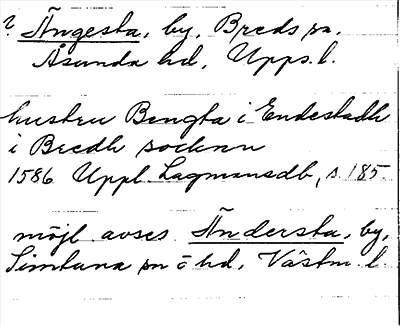 ? Ängesta, by, Breds sn,
Åsunda hd, Upps. l.
hustru Bengta i Endestadh
i Bredh socknn
1586 Uppl. Lagmansdb, s. 185
möjl. avses Ändersta, by,
Simtuna sn o hd, Västm. l